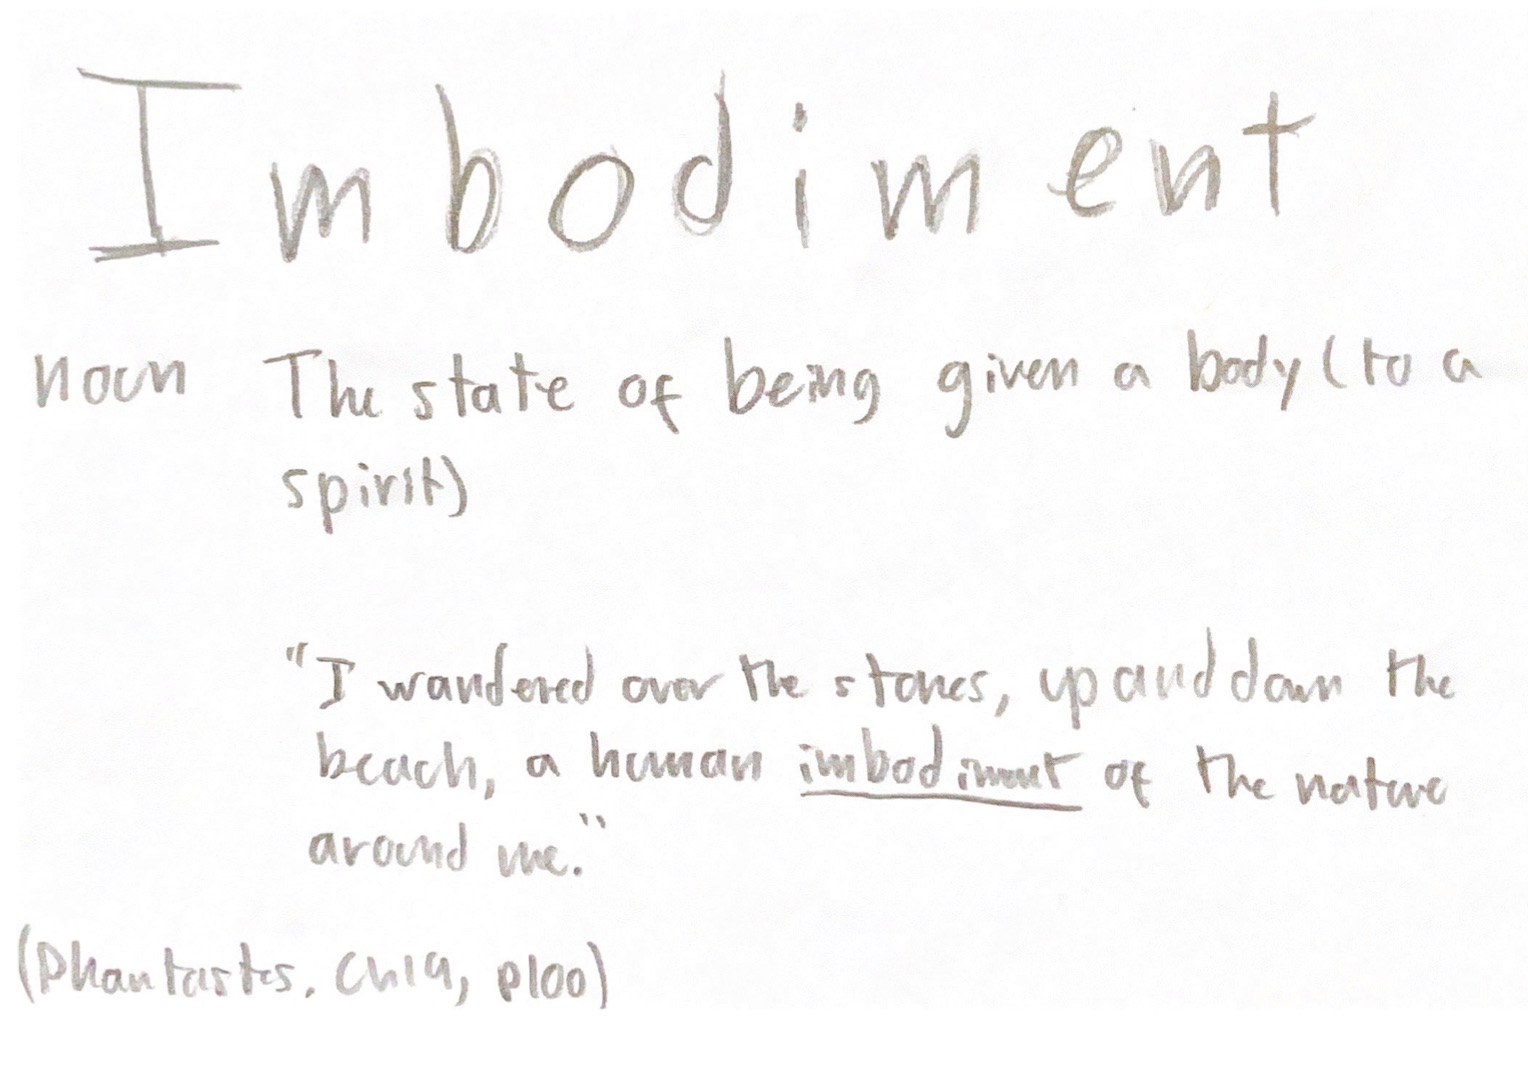 Imbodiment
noun The state of being given a body (to a
spirit)
"I wandered over the stones, up and down the
beach, a human imbodiment of the nature
around me."
(Phantastes, Ch19, p100)